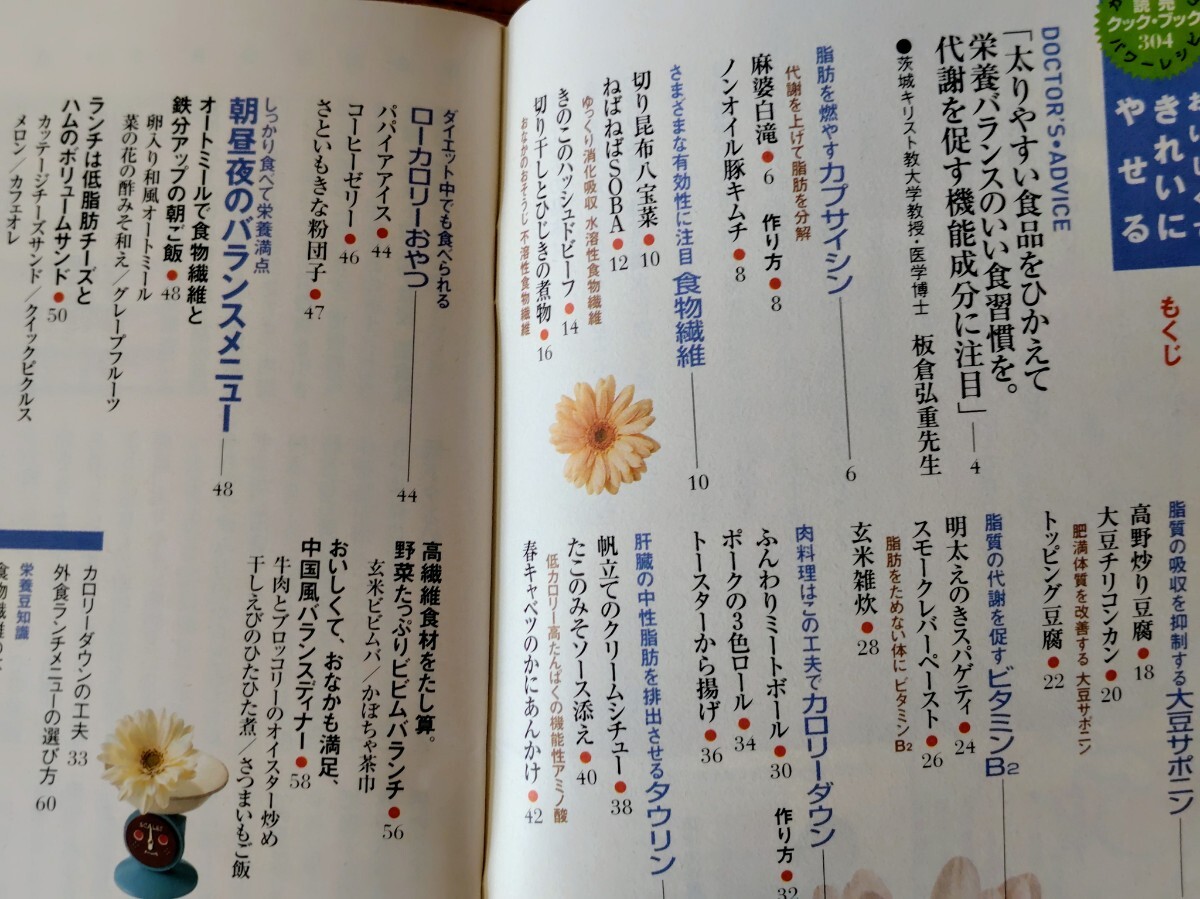 クック・ブック
304
きれいに
やせる
もくじ
DOCTOR'S・ADVICE
「太りやすい食品をひかえて
栄養バランスのいい食習慣を。
代謝を促す機能成分に注目」 4
●茨城キリスト教大学教授・医学博士 板倉弘重先生
脂肪を燃やすカプサイシン 6
代謝を上げて脂肪を分解
麻婆白滝●6 作り方●8
ノンオイル豚キムチ●8
さまざまな有効性に注目 食物繊維 10
切り昆布八宝菜●10
ねばねばSOBA●12
ゆっくり消化吸収 水溶性食物繊維
きのこのハッシュドビーフ●14
切り干しとひじきの煮物●16
おなかのおそうじ 不溶性食物繊維
脂質の吸収を抑制する大豆サポニン
高野炒り豆腐●18
大豆チリコンカン●20
肥満体質を改善する 大豆サポニン
トッピング豆腐●22
脂質の代謝を促すビタミンB2
明太えのきスパゲティ●24
スモークレバーペースト●26
脂肪をためない体に ビタミンB2
玄米雑炊●28
肉料理はこの工夫でカロリーダウン
ふんわりミートボール●30 作り方●32
ポークの3色ロール●34
トースターから揚げ●36
肝臓の中性脂肪を排出させるタウリン
帆立てのクリームシチュー●38
たこのみそソース添え●40
低カロリー高たんぱくの機能性アミノ酸
春キャベツのかにあんかけ●42
ダイエット中でも食べられる
ローカロリーおやつ 44
パパイアアイス●44
コーヒーゼリー●46
さといもきな粉団子●47
しっかり食べて栄養満点
朝昼夜のバランスメニュー 48
オートミールで食物繊維と
鉄分アップの朝ご飯●48
卵入り和風オートミール
菜の花の酢みそ和え／グレープフルーツ
ランチは低脂肪チーズと
ハムのボリュームサンド●50
カッテージチーズサンド／クイックピクルス
メロン／カフェオレ
高繊維食材をたし算。
野菜たっぷりビビムバランチ●56
玄米ビビムバ／かぼちゃ茶巾
おいしくて、おなかも満足、
中国風バランスディナー●58
牛肉とブロッコリーのオイスター炒め
干しえびのひたひた煮／さつまいもご飯
カロリーダウンの工夫 33
外食ランチメニューの選び方 60
栄養豆知識